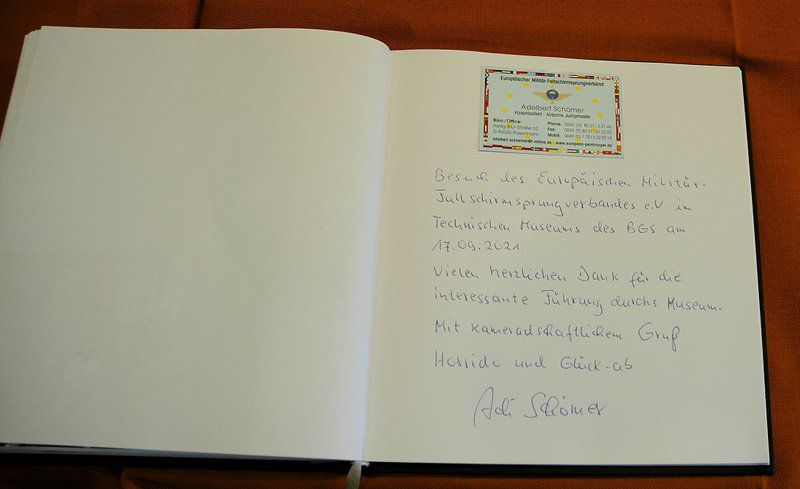 Europäischer Militär-Fallschirmsprungverband
Adelbert Schömer
Vizepräsident · Airborne Jumpmaster
Büro / Office:
D-83026 Rosenheim
Phone:
Fax:
Mobil:
adelbert.schoemer@t-online.de · www.european-paratrooper.de
Besuch des Europäischen Militär-
Fallschirmsprungverbandes e.V. im
Technischen Museums des BGS am
17.09.2021.
Vielen herzlichen Dank für die
interessante Führung durchs Museum.
Mit kameradschaftlichem Gruß
Horrido und Glück-ab
Adi Schömer